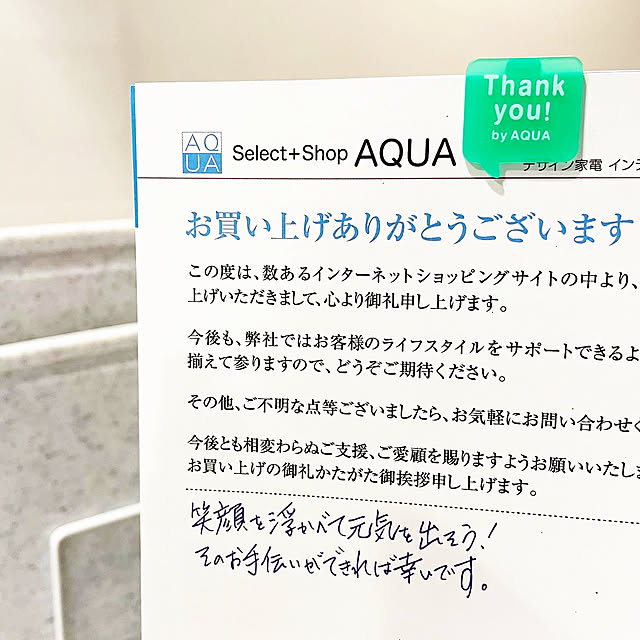 Thank
you!
by AQUA
AQ
UA
Select+Shop AQUA
デザイン家電 イン
お買い上げありがとうございます
この度は、数あるインターネットショッピングサイトの中より、
上げいただきまして、心より御礼申し上げます。
今後も、弊社ではお客様のライフスタイルをサポートできるよ
揃えて参りますので、どうぞご期待ください。
その他、ご不明な点等ございましたら、お気軽にお問い合わせく
今後とも相変わらぬご支援、ご愛顧を賜りますようお願いいたしま
お買い上げの御礼かたがた御挨拶申し上げます。
笑顔を浮かべて元気を出そう!
そのお手伝いができれば幸いです。